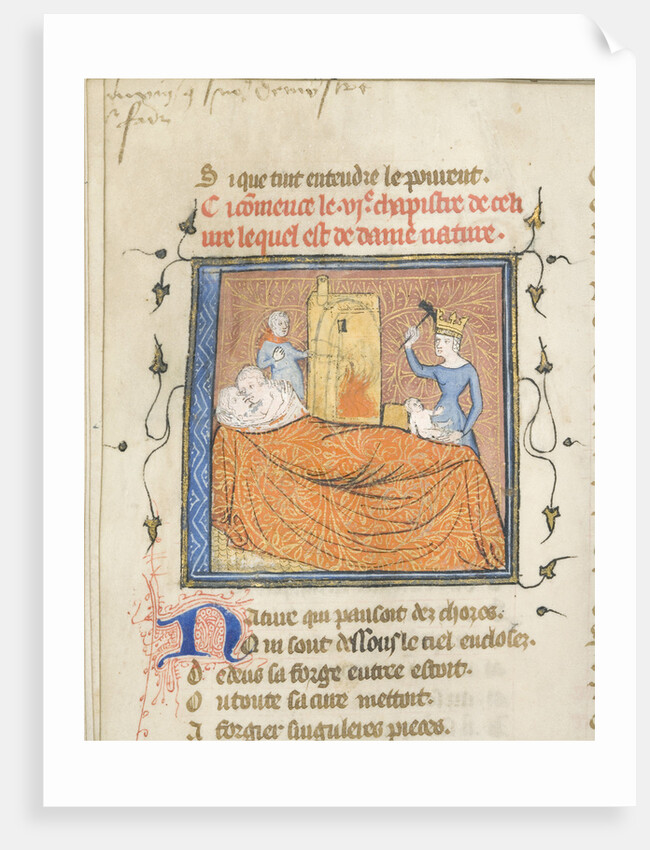 Si que tuit entendre le peurent.
Ci cõmence le .vjᵉ. chapistre de ce li
ure lequel est de dame nature.
Nature qui pansoit dez choses.
Qui sont dessous le ciel encloses.
Dedens sa forge entree estoit.
Ou toute sa cure mettoit.
A forgier singuleres pieces.